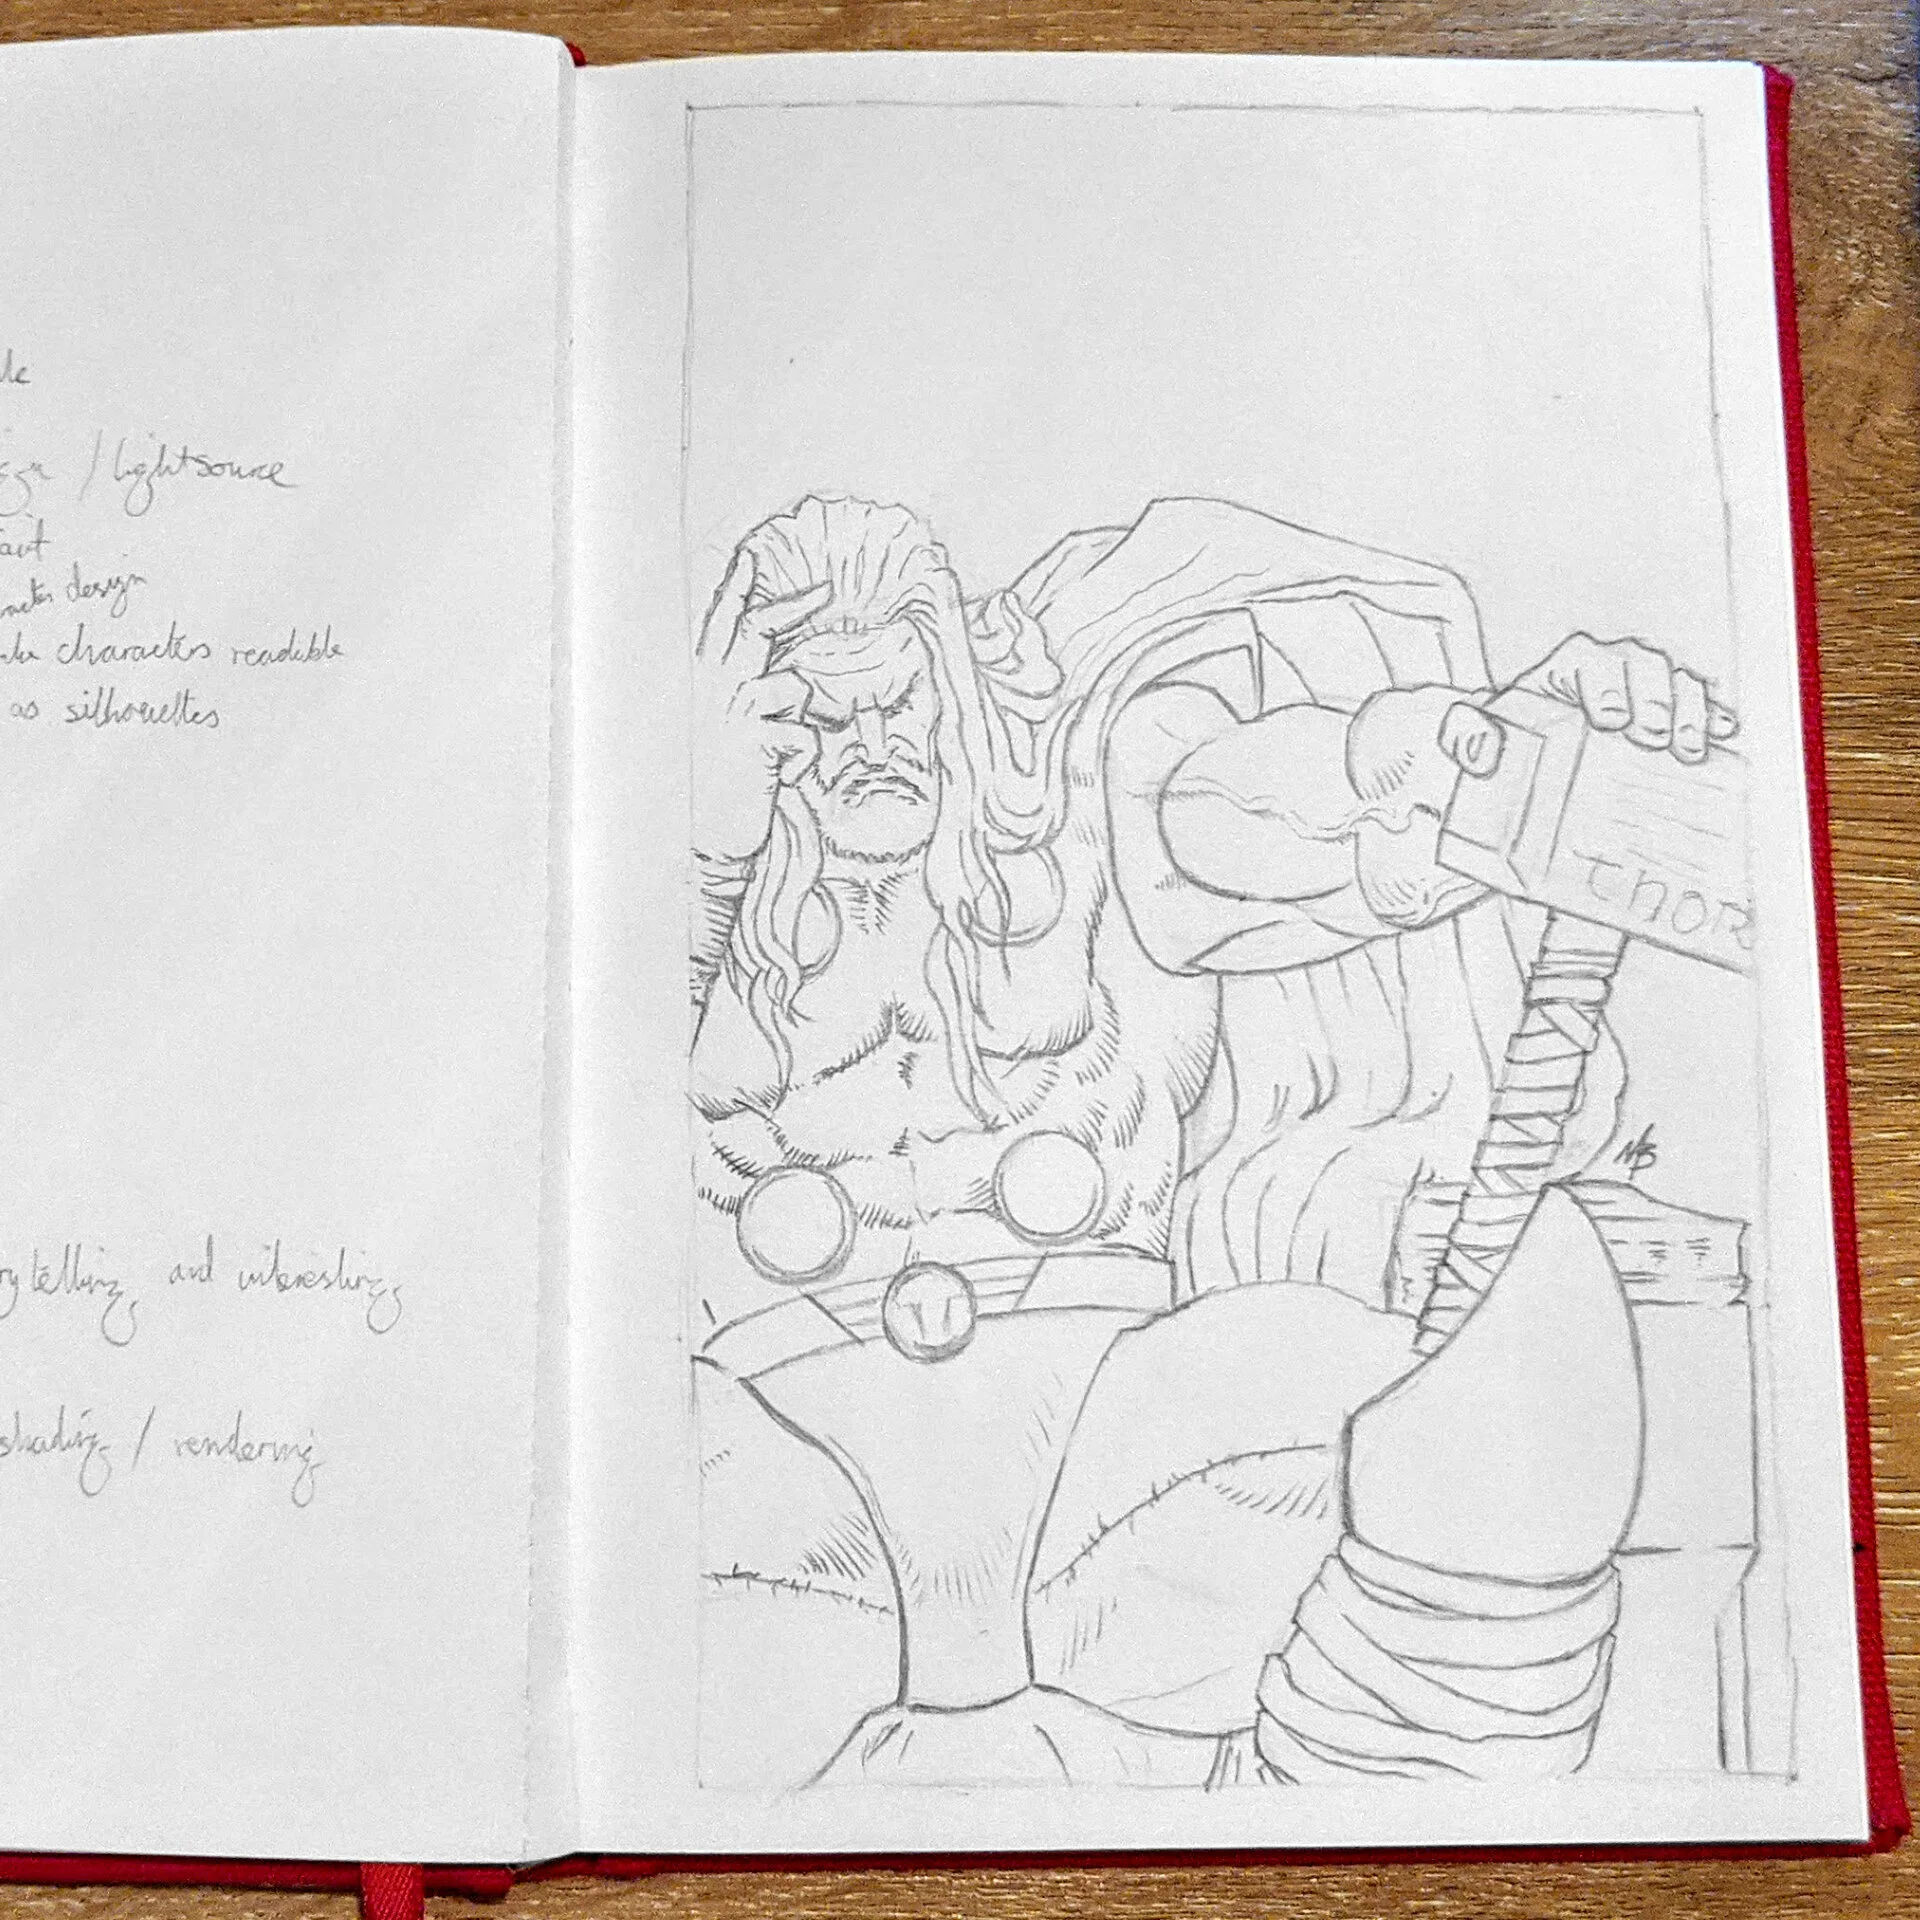 / lightsource
design
characters readable
as silhouettes
and interesting
shading / rendering
THOR
MB